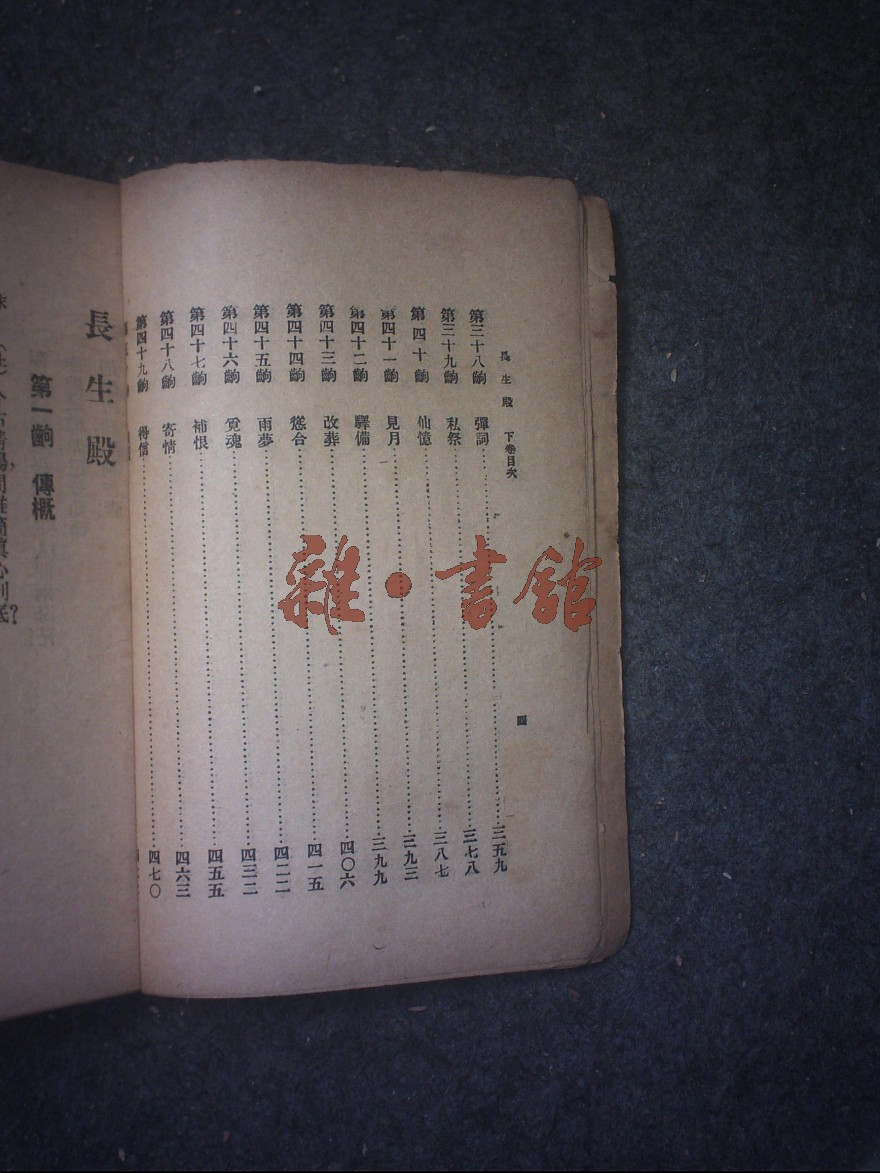 長生殿 下卷目次 四
第三十八齣 彈詞……三五九
第三十九齣 私祭……三七八
第四十齣 仙憶……三八七
第四十一齣 見月……三九三
第四十二齣 驛備……三九九
第四十三齣 改葬……四〇六
第四十四齣 慫合……四一五
第四十五齣 雨夢……四二二
第四十六齣 覓魂……四三二
第四十七齣 補恨……四五五
第四十八齣 寄情……四六三
第四十九齣 得信……四七〇
長生殿
第一齣 傳概
雜·書館